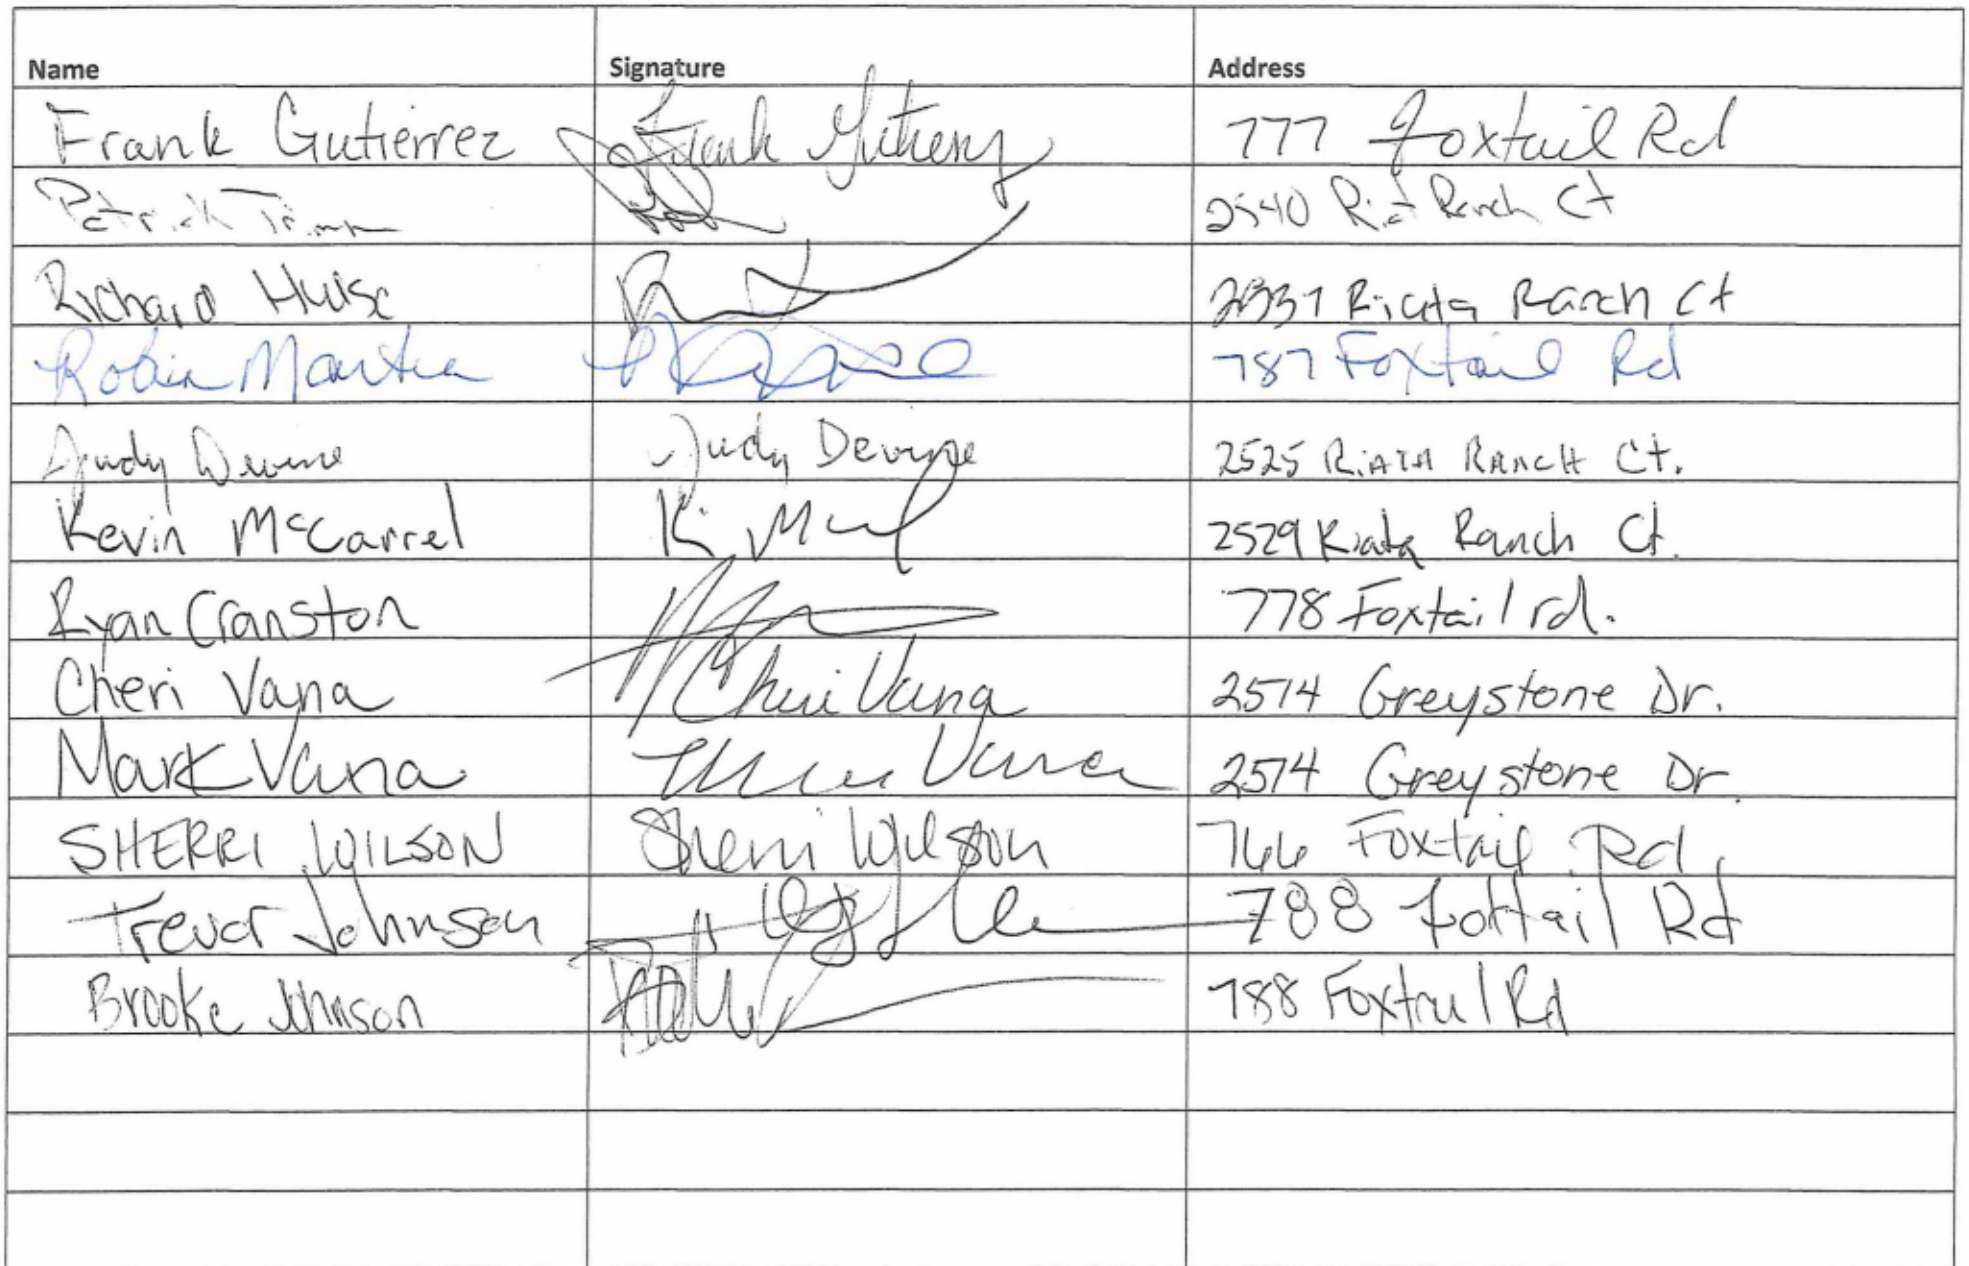 Name Signature Address
Frank Gutierrez Frank Gutierrez 777 Foxtail Rd
Patrick 2540 Ranch Ct
Richard Hulse Riata Ranch Ct
Robin Martin 787 Foxtail Rd
Judy Devine Judy Devine 2525 RIATA RANCH Ct.
Kevin McCarrel 2529 Riata Ranch Ct.
Ryan Cranston 778 Foxtail rd.
Cheri Vana Cheri Vana 2574 Greystone Dr.
Mark Vana Vana 2574 Greystone Dr.
SHERRI WILSON Sherri Wilson 766 Foxtail Rd.
Trevor Johnson 788 Foxtail Rd
Brooke Johnson 788 Foxtail Rd